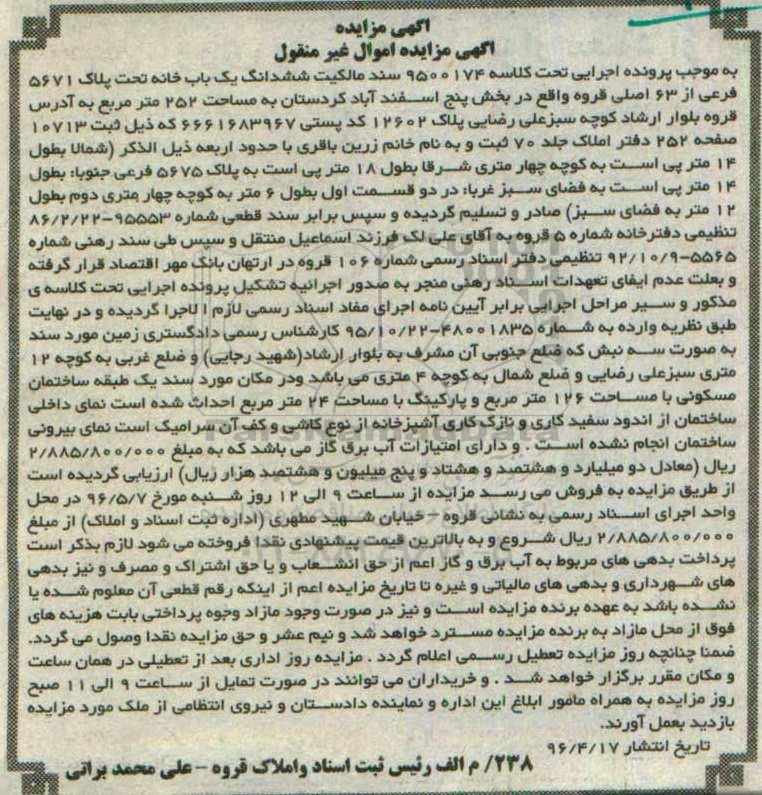 اگهی مزایده
آگهی مزایده اموال غیر منقول
به موجب پرونده اجرایی تحت کلاسه ۹۵۰۰۱۷۴ سند مالکیت ششدانگ یک باب خانه تحت پلاک ۵۶۷۱
فرعی از ۶۳ اصلی قروه واقع در بخش پنج اسفند آباد کردستان به مساحت ۲۵۲ متر مربع به آدرس
قروه بلوار ارشاد کوچه سبزعلی رضایی پلاک ۱۲۶۰۲ کد پستی ۶۶۶۱۶۸۳۹۶۷ که ذیل ثبت ۱۰۷۱۳
صفحه ۲۵۲ دفتر املاک جلد ۷۰ ثبت و به نام خانم زرین باقری با حدود اربعه ذیل الذکر (شمالا بطول
۱۴ متر پی است به کوچه چهار متری شرقا بطول ۱۸ متر پی است به پلاک ۵۶۷۵ فرعی جنوبا؛ بطول
۱۴ متر پی است به فضای سبز غربا؛ در دو قسمت اول بطول ۶ متر به کوچه چهار متری دوم بطول
۱۲ متر به فضای سبز) صادر و تسلیم گردیده و سپس برابر سند قطعی شماره ۹۵۵۵۳-۸۶/۲/۲۲
تنظیمی دفترخانه شماره ۵ قروه به آقای علی لک فرزند اسماعیل منتقل و سپس طی سند رهنی شماره
۵۵۶۵-۹۲/۱۰/۹ تنظیمی دفتر اسناد رسمی شماره ۱۰۶ قروه در ارتهان بانک مهر اقتصاد قرار گرفته
و بعلت عدم ایفای تعهدات اسناد رهنی منجر به صدور اجرائیه تشکیل پرونده اجرایی تحت کلاسه ی
مذکور و سیر مراحل اجرایی برابر آیین نامه اجرای مفاد اسناد رسمی لازم الاجرا گردیده و در نهایت
طبق نظریه وارده به شماره ۴۸۰۰۱۸۳۵-۹۵/۱۰/۲۲ کارشناس رسمی دادگستری زمین مورد سند
به صورت سه نبش که ضلع جنوبی آن مشرف به بلوار ارشاد(شهید رجایی) و ضلع غربی به کوچه ۱۲
متری سبزعلی رضایی و ضلع شمال به کوچه ۴ متری می باشد ودر مکان مورد سند یک طبقه ساختمان
مسکونی با مساحت ۱۲۶ متر مربع و پارکینگ با مساحت ۲۴ متر مربع احداث شده است نمای داخلی
ساختمان از اندود سفید کاری و نازک کاری آشپزخانه از نوع کاشی و کف آن سرامیک است نمای بیرونی
ساختمان انجام نشده است . و دارای امتیازات آب برق گاز می باشد که به مبلغ ۲/۸۸۵/۸۰۰/۰۰۰
ریال (معادل دو میلیارد و هشتصد و هشتاد و پنج میلیون و هشتصد هزار ریال) ارزیابی گردیده است
از طریق مزایده به فروش می رسد مزایده از ساعت ۹ الی ۱۲ روز شنبه مورخ ۹۶/۵/۷ در محل
واحد اجرای اسناد رسمی به نشانی قروه - خیابان شهید مطهری (اداره ثبت اسناد و املاک) از مبلغ
۲/۸۸۵/۸۰۰/۰۰۰ ریال شروع و به بالاترین قیمت پیشنهادی نقدا فروخته می شود لازم بذکر است
پرداخت بدهی های مربوط به آب برق و گاز اعم از حق انشعاب و یا حق اشتراک و مصرف و نیز بدهی
های شهرداری و بدهی های مالیاتی و غیره تا تاریخ مزایده اعم از اینکه رقم قطعی آن معلوم شده یا
نشده باشد به عهده برنده مزایده است و نیز در صورت وجود مازاد وجوه پرداختی بابت هزینه های
فوق از محل مازاد به برنده مزایده مسترد خواهد شد و نیم عشر و حق مزایده نقدا وصول می گردد.
ضمنا چنانچه روز مزایده تعطیل رسمی اعلام گردد . مزایده روز اداری بعد از تعطیلی در همان ساعت
و مکان مقرر برگزار خواهد شد . و خریداران می توانند در صورت تمایل از ساعت ۹ الی ۱۱ صبح
روز مزایده به همراه مامور ابلاغ این اداره و نماینده دادستان و نیروی انتظامی از ملک مورد مزایده
بازدید بعمل آورند.
تاریخ انتشار ۹۶/۴/۱۷
۲۳۸/ م الف رئیس ثبت اسناد واملاک قروه - علی محمد براتی